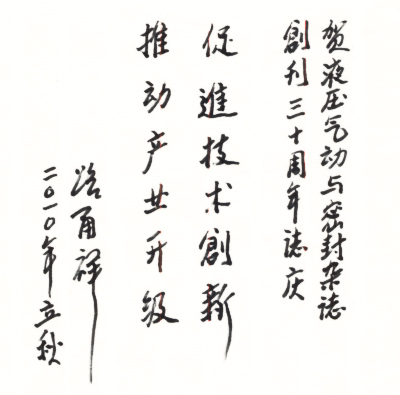 贺液压气动与密封杂誌
創刊三十周年誌庆
促進技术創新
推动产业升级
路甬祥
二〇一〇年立秋